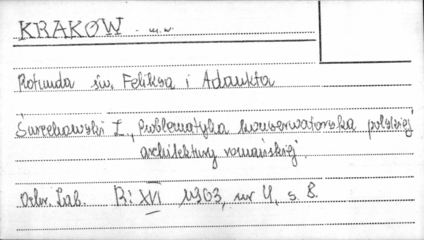 KRAKÓW - m.w.
Rotunda św. Feliksa i Adaukta
Świechowski Z., Problematyka konserwatorska polskiej
architektury romańskiej,
Ochr. Zab. R: XVI 1963, nr 4, s. 8.